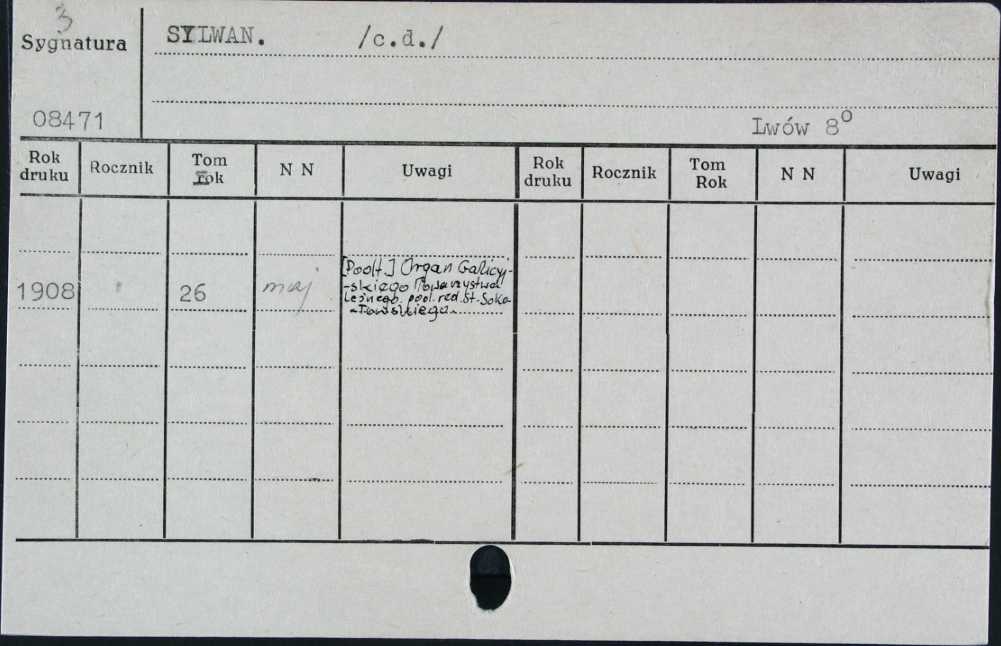 3
Sygnatura
SYLWAN. /c.d./
08471
Lwów 8⁰
Rok druku Rocznik Tom Rok N N Uwagi Rok druku Rocznik Tom Rok N N Uwagi
1908 26 maj
[Podt.] Organ Galicyj-
-skiego Towarzystwa
Leśnego. pod. red. St. Soko-
-łowskiego.